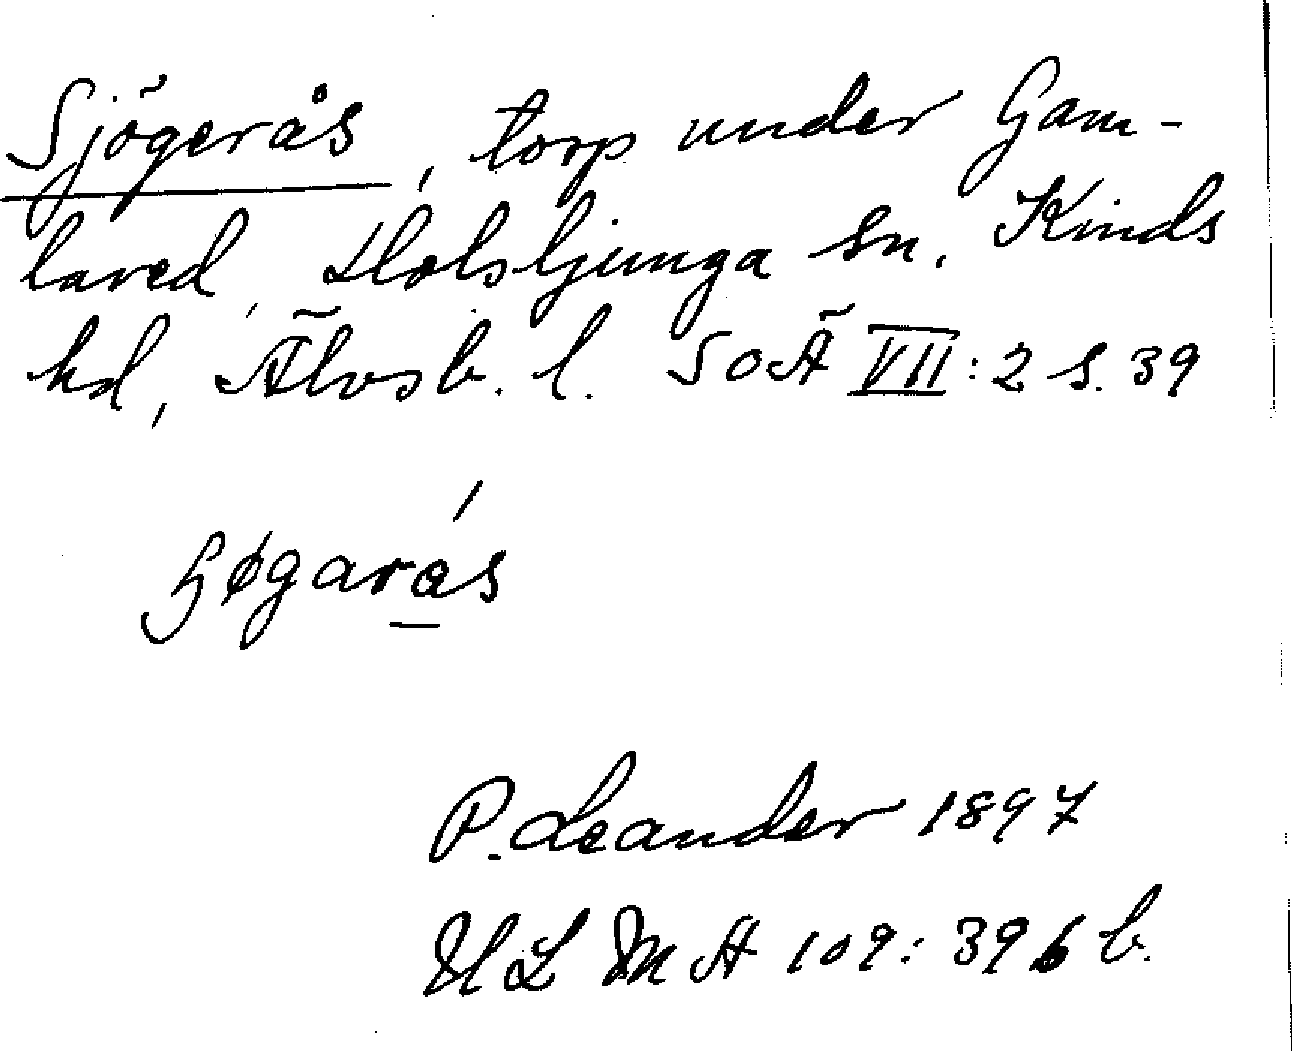 Sjögerås, torp under Gam-
lared, Holsljunga sn. Kinds
hd, Älvsb. l. SOÄ VII:2 s. 39
ɧøgarás
P. Leander 1897
ULMA 109: 396 b.